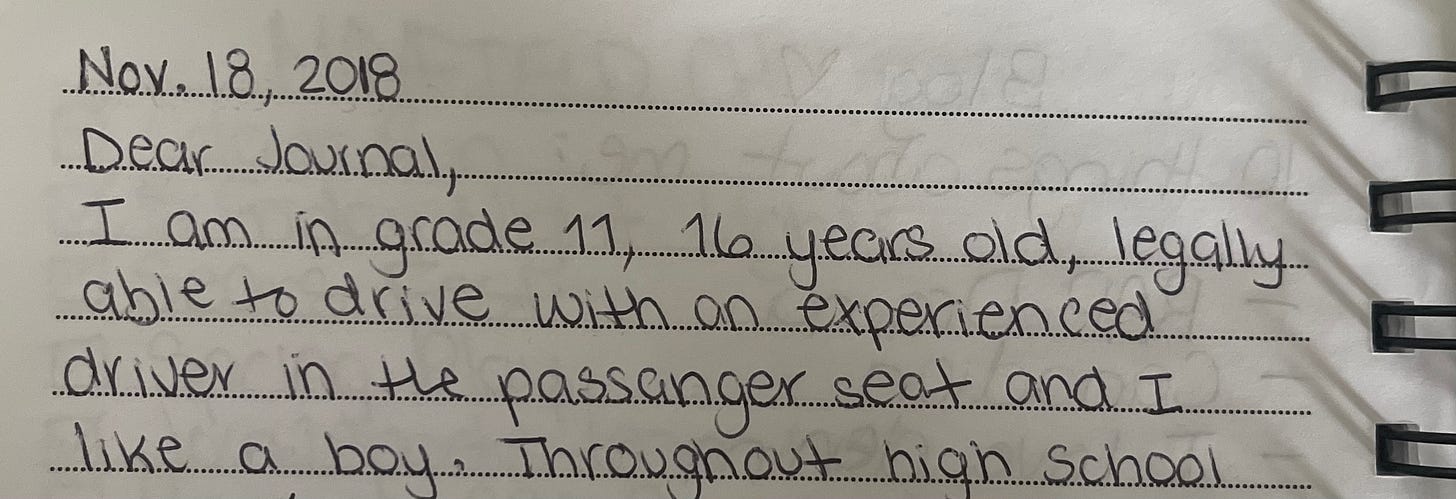 Nov. 18, 2018
Dear Journal,
I am in grade 11, 16 years old, legally
able to drive with an experienced
driver in the passanger seat and I
like a boy. Throughout high school